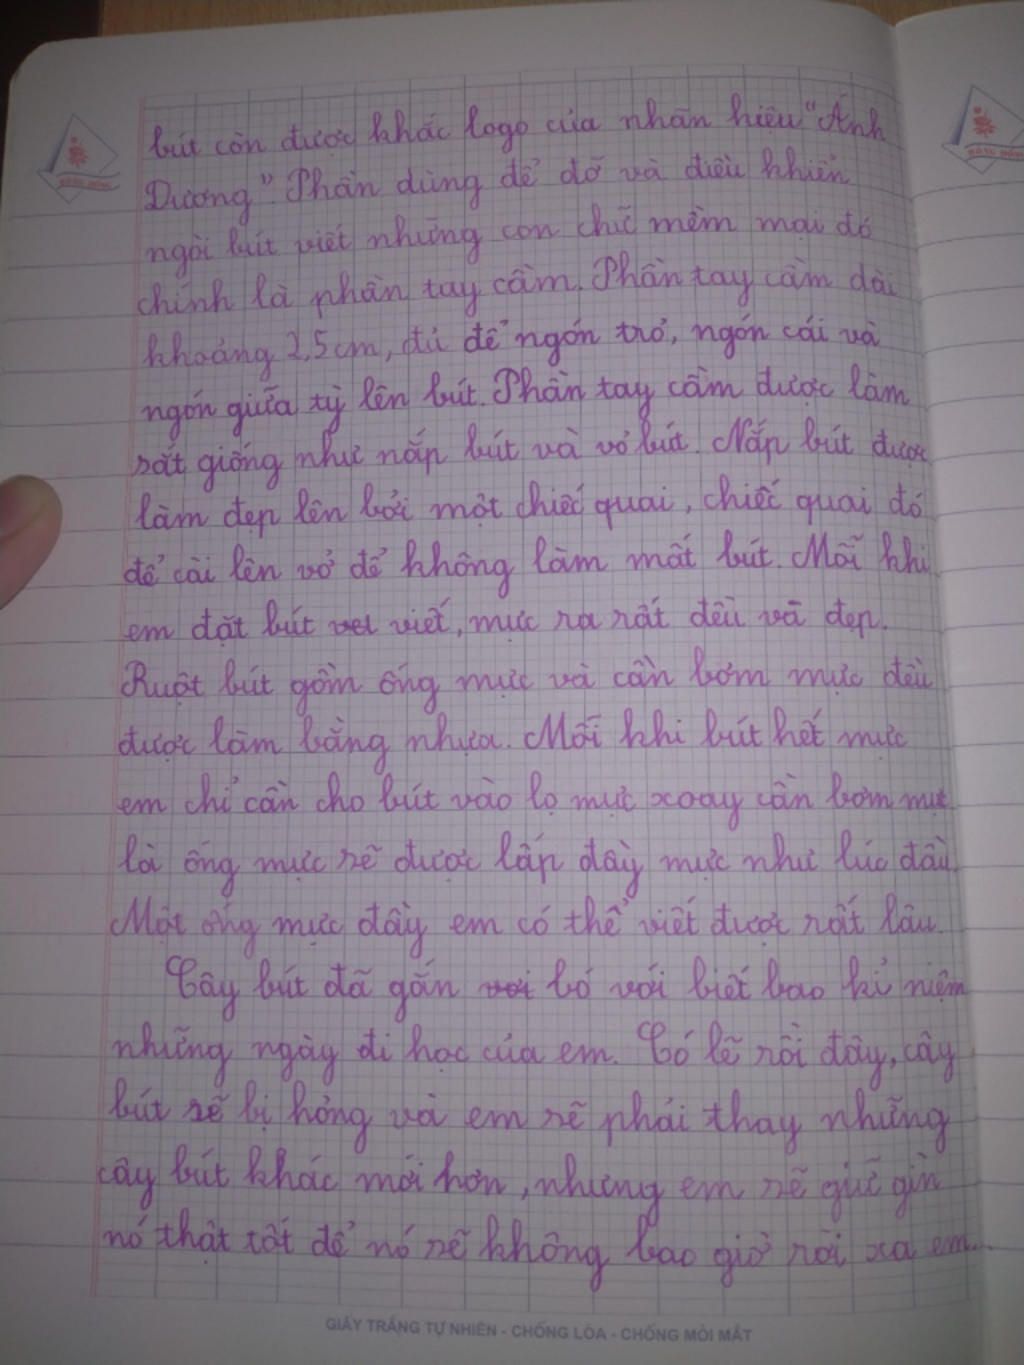 bút còn được khắc logo của nhãn hiệu "Ánh
Dương". Phần dùng để đỡ và điều khiển
ngòi bút viết những con chữ mềm mại đó
chính là phần tay cầm. Phần tay cầm dài
khoảng 2,5cm, đủ để ngón trỏ, ngón cái và
ngón giữa tỳ lên bút. Phần tay cầm được làm
rất giống như nắp bút và vỏ bút. Nắp bút được
làm đẹp lên bởi một chiếc quai, chiếc quai đó
để cài lên vở để không làm mất bút. Mỗi khi
em đặt bút viết, mực ra rất đều và đẹp.
Ruột bút gồm ống mực và cần bơm mực đều
được làm bằng nhựa. Mỗi khi bút hết mực
em chỉ cần cho bút vào lọ mực xoay cần bơm mực
là ống mực sẽ được lấp đầy mực như lúc đầu.
Một ống mực đầy em có thể viết được rất lâu.
Cây bút đã gắn bó với biết bao kỉ niệm
những ngày đi học của em. Có lẽ rồi đây, cây
bút sẽ bị hỏng và em sẽ phải thay những
cây bút khác mới hơn, nhưng em sẽ giữ gìn
nó thật tốt để nó sẽ không bao giờ rời xa em...
GIẤY TRẮNG TỰ NHIÊN - CHỐNG LÓA - CHỐNG MỎI MẮT